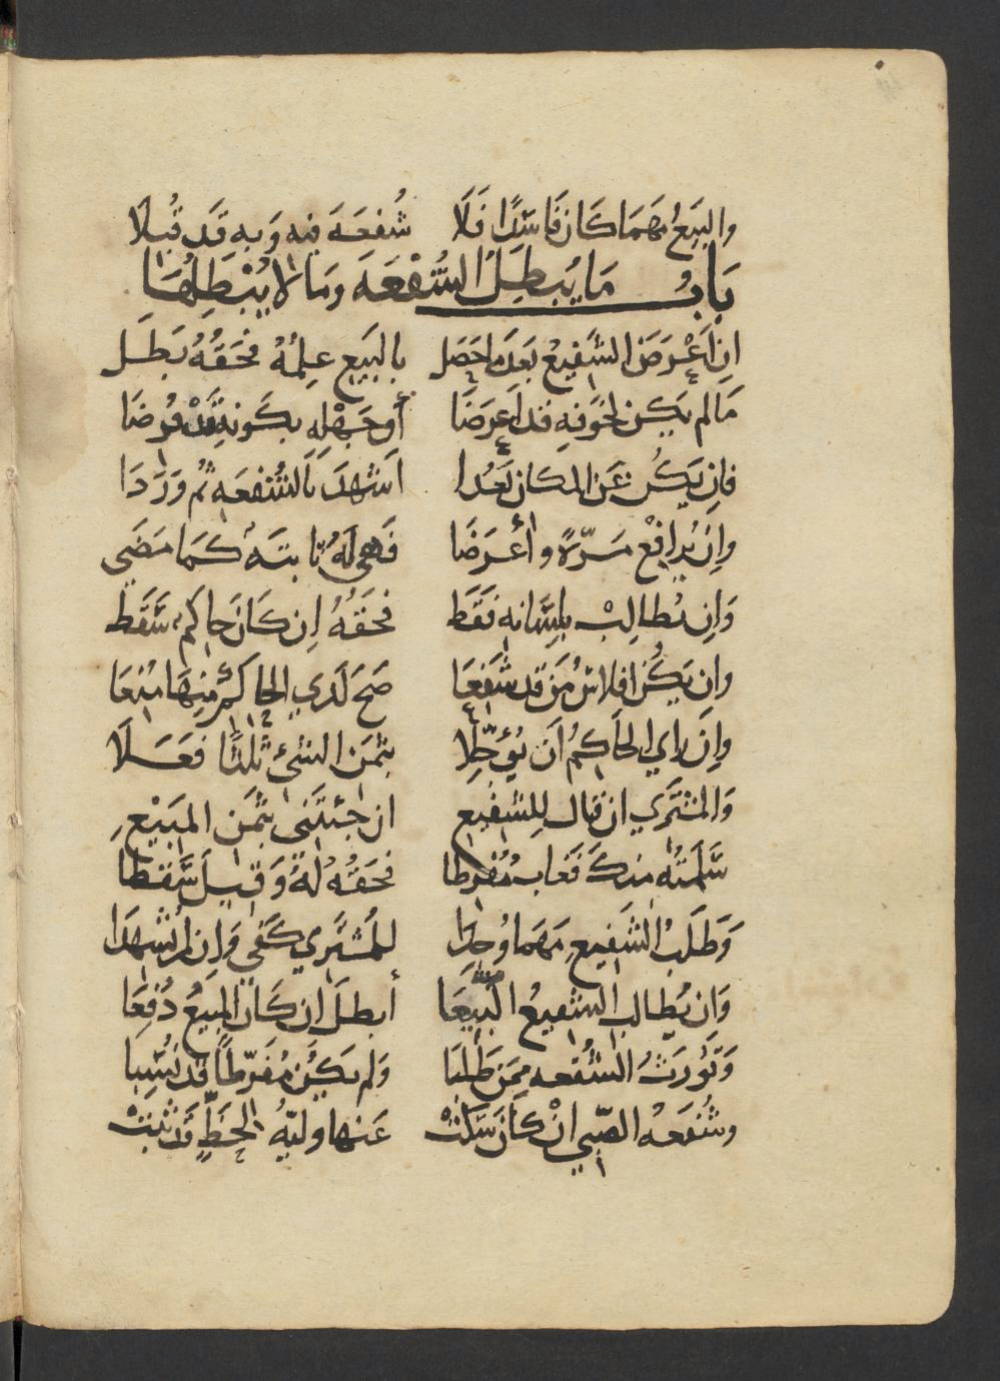 والبَيعُ مهمَا كَان فَاسْدًا فَلَا شُفعَةَ فيه وَبهِ قَد قُبِلَا
بَابُ مَا يُبطِلُ الشُّفْعَة وَمَا لا يُبْطِلُهَا
اِن اَعْرَضَ الشَفيعُ بَعدَ ما حَصَل بِالبَيعِ عِلمُهُ فحَقّهُ بَطَل
مَا لم يَكن لخَوفهِ قد اَعرَضَا أو جَهْلِهِ بكَونهِ قَدْ فُرضَا
فان يَكُن عَن المكان بَعُدا اَشهدَ بالشفعَهِ ثم وَرَدَا
وإن يُرافِعْ مَرّةً وأعْرَضَا فَهى لَهُ ثابتَه كمَا مَضَى
وَان يُطالِبْ بلِسَانه فَقَط فحَقهُ إن كَانَ حاكم سَقَط
وان يَكُن افلاسُ مَن قد شَفَعَا صَحَ لَدي الحاكم منهَا مُنعَا
وإن راي الحاكمُ اَن يُؤجّلِا بثمَن الشئ ثلثًا فعَلَا
وَالمشتَري ان قال لِلشفيع ان جئتَنى بثمَن المبَيْعِ
سَلّمتُه منك فَغاب مُفرطا فحَقهُ لهُ وَقيلَ سَقطا
وَطَلَبُ الشَفيعِ مَهمَا وُجدَا للمُشتَري كَفي وَان لم يُشهدَا
وَان يُطالب الشفيعُ البَيعَا أبطلَ ان كَان المبيعُ دُفعَا
وَتُورَثُ الشُفعه ممن طَلبَا وَلم يَكُن مُفَرّطًا قد نُسِبا
وشُفعَهُ الصّبي انْ كَانَ سَكتْ عَنها وليّهُ لحَظٍّ قد ثبتْ